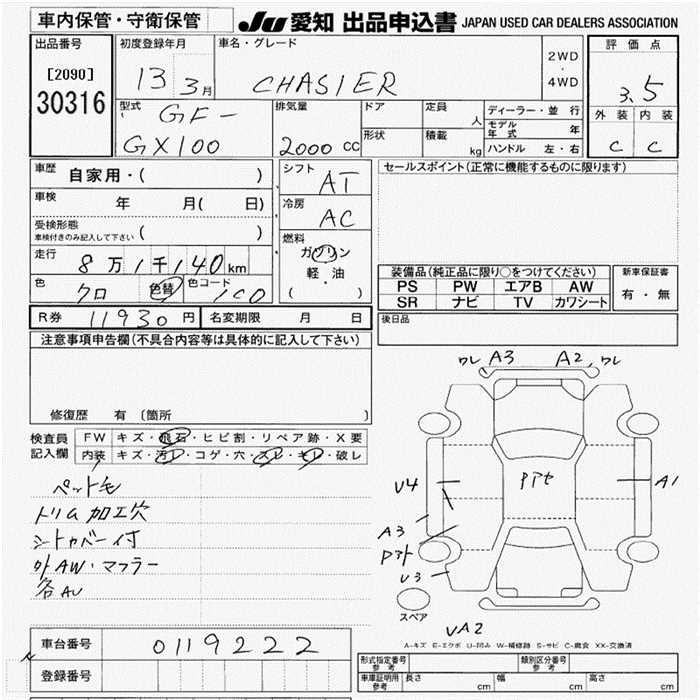 車内保管・守衛保管
JU 愛知 出品申込書 JAPAN USED CAR DEALERS ASSOCIATION
出品番号
[2090]
30316
初度登録年月
13 3月
車名・グレード
CHASIER
2WD
・
4WD
評価点
3.5
外装 内装
C C
型式
GF-
GX100
排気量
2000 cc
ドア
形状
定員
人
積載
kg
ディーラー・並行
モデル年式 年
ハンドル 左・右
車歴
自家用・( )
車検
年 月( 日)
受検形態
車検付きのみ記入して下さい ( )
走行
8万1千140km
色
クロ
色替
色コード
1C0
シフト
AT
冷房
AC
燃料
ガソリン
軽・油
( )
セールスポイント(正常に機能するものに限ります)
装備品(純正品に限り○をつけてください)
PS PW エアB AW
SR ナビ TV カワシート
新車保証書
有・無
R券 11930円
名変期限 月 日
後日品
注意事項申告欄(不具合内容等は具体的に記入して下さい)
修復歴 有 〔箇所 〕
検査員
記入欄
FW キズ・飛石・ヒビ割・リペア跡・X要
内装 キズ・汚レ・コゲ・穴・スレ・キレ・破レ
ペット毛
トリム加工穴
シートカバー付
外AW・マフラー
各AU
ワレ A3 A2, ワレ
Pアセ
U4
A1
A3
Pアト
U3
スペア
UA2
A-キズ E-エクボ U-凹み W-補修跡 S-サビ C-腐食 XX-交換済
車台番号
0119222
登録番号
形式指定番号
参考
類別区分番号
参考
車庫証明用
参考
長さ cm
幅 cm
高さ cm